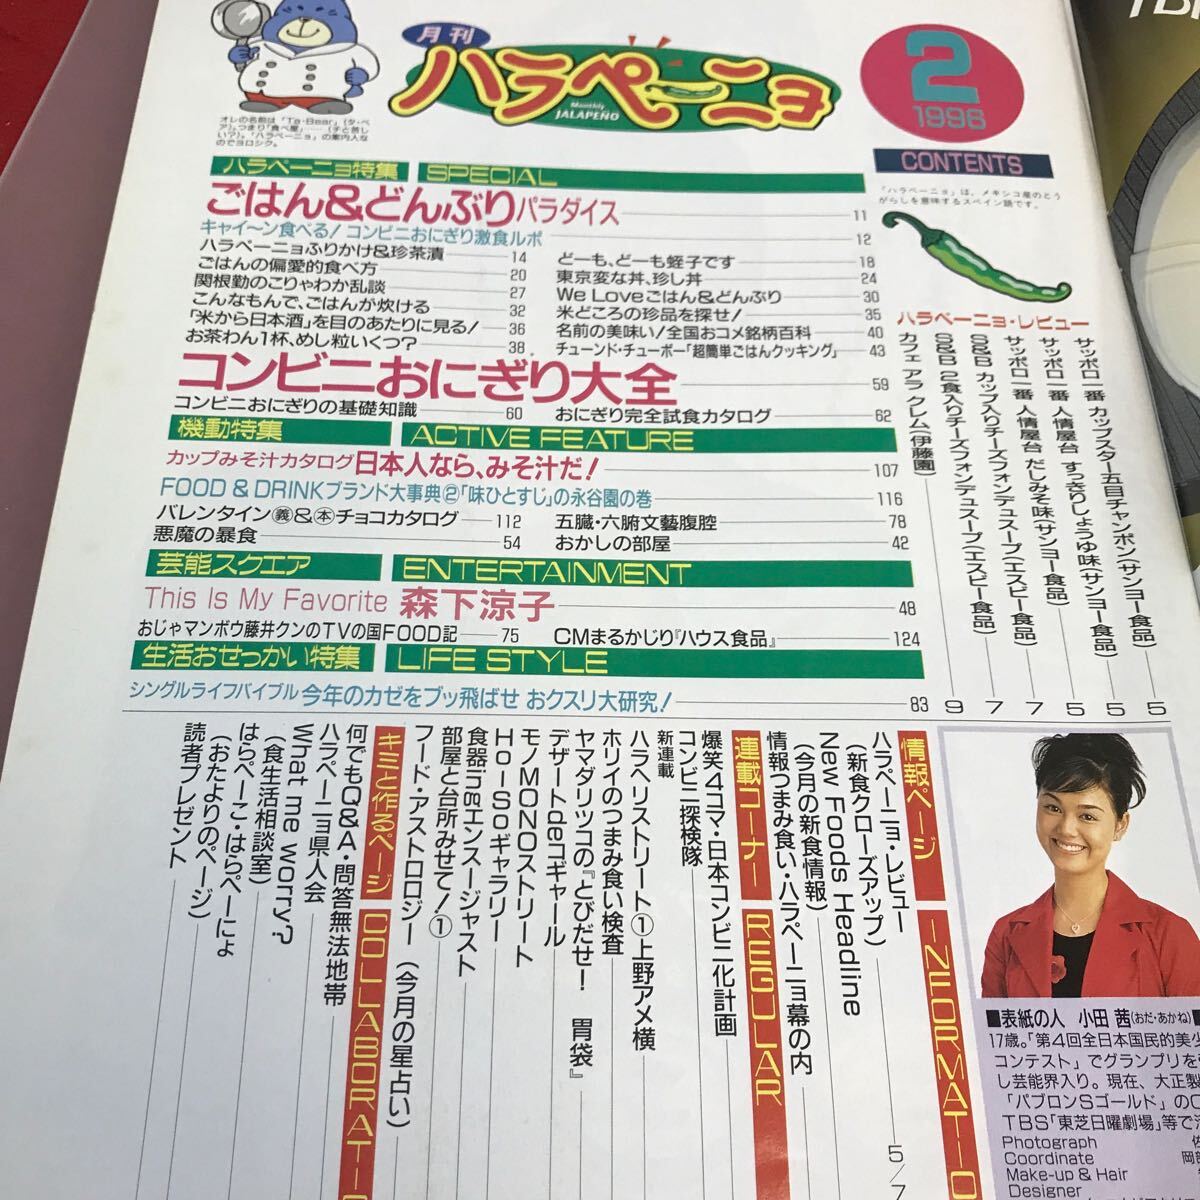 月刊
ハラペーニョ
Monthly
JALAPEÑO
2
1996
CONTENTS
オレの名前は「Ta-Bear」(タ・ベ
ア)。つまり「食べ屋」……(チと苦し
い?)。「ハラペーニョ」の案内人な
のでヨロシク。
「ハラペーニョ」は、メキシコ産のとう
がらしを意味するスペイン語です。
ハラペーニョ特集 SPECIAL
ごはん&どんぶりパラダイス 11
キャイ〜ン食べる! コンビニおにぎり激食ルポ 12
ハラペーニョふりかけ&珍茶漬 14
ごはんの偏愛的食べ方 20
関根勤のこりゃわか乱談 27
こんなもんで、ごはんが炊ける 32
「米から日本酒」を目のあたりに見る! 36
お茶わん1杯、めし粒いくつ? 38
どーも、どーも蛭子です 18
東京変な丼、珍し丼 24
We Loveごはん&どんぶり 30
米どころの珍品を探せ! 35
名前の美味い!全国おコメ銘柄百科 40
チューンド・チューボー「超簡単ごはんクッキング」 43
コンビニおにぎり大全 59
コンビニおにぎりの基礎知識 60
おにぎり完全試食カタログ 62
機動特集 ACTIVE FEATURE
カップみそ汁カタログ日本人なら、みそ汁だ! 107
FOOD & DRINKブランド大事典②「味ひとすじ」の永谷園の巻 116
バレンタイン㊥義&本チョコカタログ 112
悪魔の暴食 54
五臓・六腑文藝腹腔 78
おかしの部屋 42
芸能スクエア ENTERTAINMENT
This Is My Favorite 森下涼子 48
おじゃマンボウ藤井クンのTVの国FOOD記 75
CMまるかじり『ハウス食品』 124
生活おせっかい特集 LIFE STYLE
シングルライフバイブル 今年のカゼをブッ飛ばせ おクスリ大研究! 83
ハラペーニョ・レビュー
サッポロ一番 カップスター五目チャンポン(サンヨー食品) 5
サッポロ一番 人情屋台 すっきりしょうゆ味(サンヨー食品) 5
サッポロ一番 人情屋台 だしみそ味(サンヨー食品) 5
S&B カップ入りチーズフォンデュスープ(エスビー食品) 7
S&B 2食入りチーズフォンデュスープ(エスビー食品) 7
カフェ アラ クレム(伊藤園) 9
情報ページ INFORMATIO
ハラペーニョ・レビュー
(新食クローズアップ) 5/7
New Foods Headline
(今月の新食情報)
情報つまみ食い・ハラペーニョ幕の内
連載コーナー REGULAR
爆笑4コマ・日本コンビニ化計画
コンビニ探検隊
新連載
ハラペリストリート①上野アメ横
ホリイのつまみ食い検査
ヤマダリツコの『とびだせ! 胃袋』
デザートdeコギャール
モノMONOストリート
Ho-Soギャラリー
食器ingエンスージャスト
部屋と台所みせて!①
フード・アストロロジー (今月の星占い)
キミと作るページ COLLABORATIO
何でもQ&A・問答無法地帯
ハラペーニョ県人会
What me worry?
(食生活相談室)
はらぺーこ・はらぺーにょ
(おたよりのページ)
読者プレゼント
■表紙の人 小田 茜(おだ・あかね)■
17歳。「第4回全日本国民的美少
コンテスト」でグランプリを
し芸能界入り。現在、大正製
「パブロンSゴールド」のC
TBS「東芝日曜劇場」等で
Photograph
Coordinate
Make-up & Hair
Designer